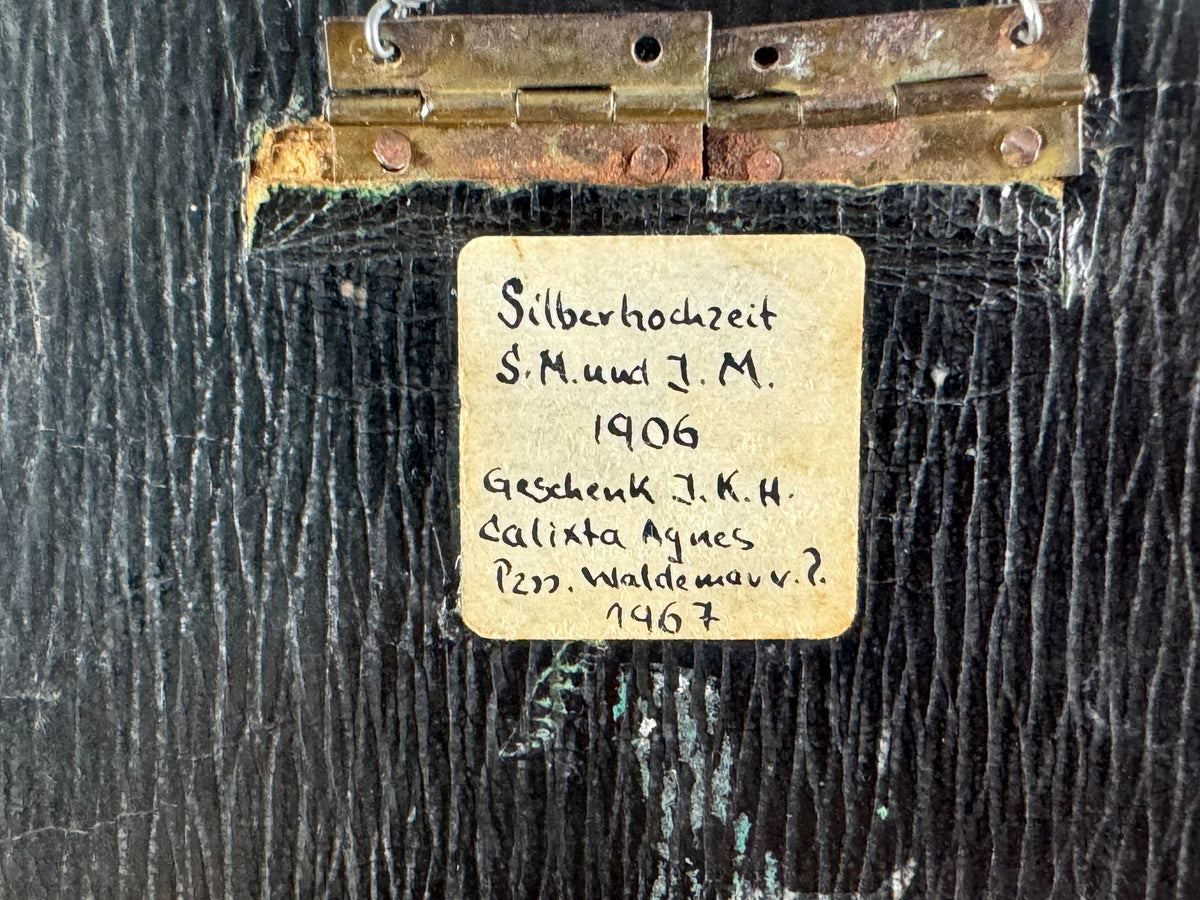 Silberhochzeit
S.M. und I. M.
1906
Geschenk I.K.H.
Calixta Agnes
Pzss. Waldemar v. P.
1967